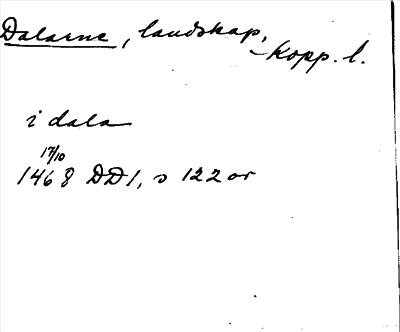 Dalarne, landskap,
Kopp. l.
i dala
17/10
1468 DD1, s 122 or